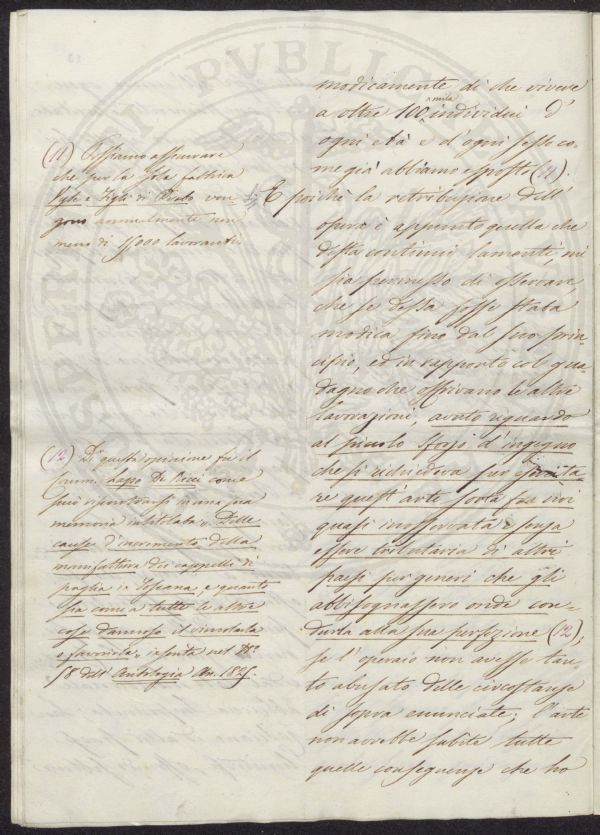 modicamente di che vivere
a oltre 100 mila individui d'
ogni età e d'ogni sesso co-
me già abbiamo esposto (11).
E poichè la retribuzione dell'
opera è appunto quella che
desta continui lamenti mi
sia permesso di osservare
che se dessa fosse stata
modica fino dal suo prin-
cipio, ed in rapporto col gua-
dagno che offrivano le altre
lavorazioni, avuto riguardo
al piccolo sforzo d'ingegno
che si richiedeva per
re quest'arte sorta fra noi
quasi inosservata e senza
essere tributaria di altri
paesi per generi che gli
abbisognassero onde con-
durla alla sua perfezione (12);
se l'operaio non avesse tan-
to abusato delle circostanze
di sopra enunciate; l'arte
non avrebbe subite tutte
quelle conseguenze che ho
(11) Possiamo assicurare
che per la sola fattoria
Vyse e Figli di Prato ven-
gono annualmente non
meno di lavoranti.
(12) Di quest'opinione fu il
Lapo De Ricci come
può riscontrarsi in una sua
memoria intitolata: Delle
cause d'incremento della
manifattura dei cappelli di
paglia in Toscana, e quanto
sia come a tutte le altre
cose dannoso il vincolarla
o favorirla, inserita nel N.º
58 dell'Antologia An. 1825.